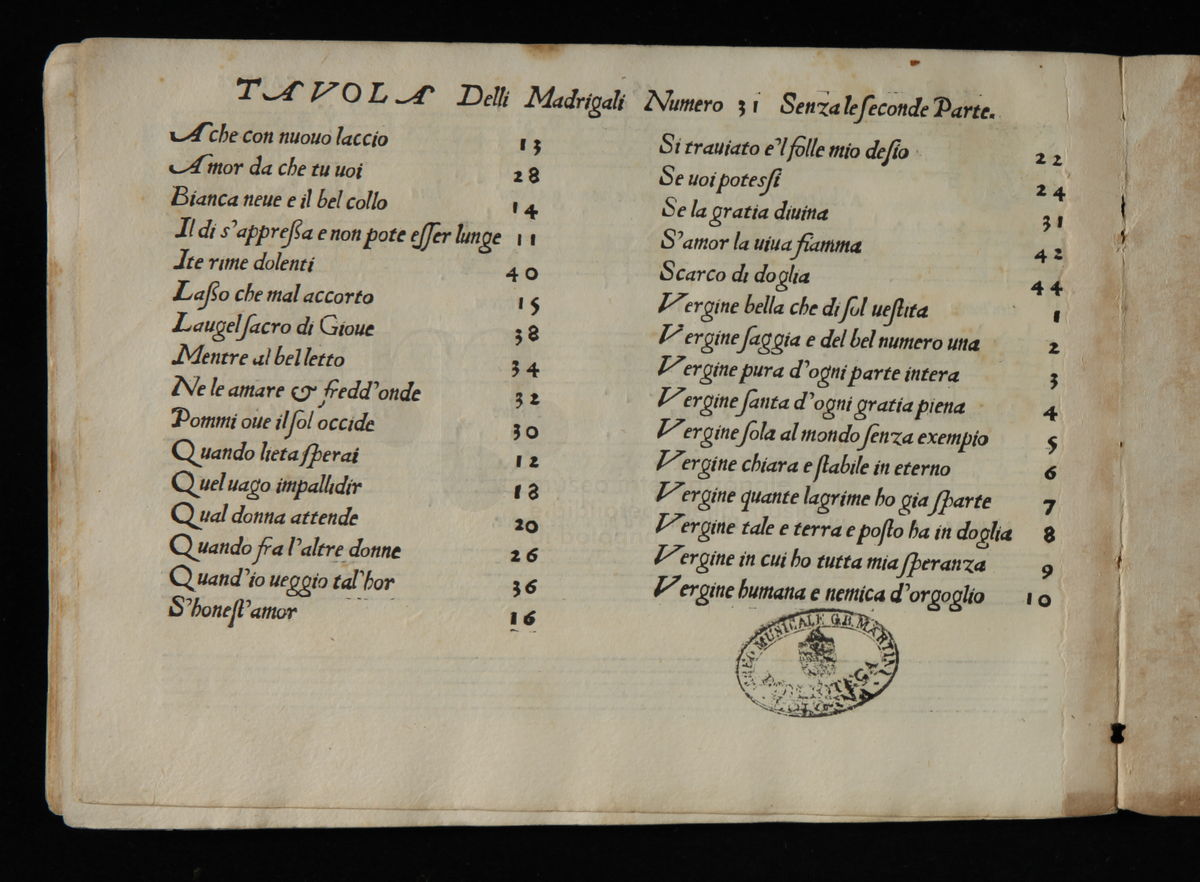 TAVOLA Delli Madrigali Numero 31 Senza le seconde Parte.
A che con nuouo laccio 13
Amor da che tu uoi 28
Bianca neue e il bel collo 14
Il di s'appreßa e non pote eſſer lunge 11
Ite rime dolenti 40
Laßo che mal accorto 15
Laugel ſacro di Gioue 38
Mentre al bel letto 34
Ne le amare & fredd'onde 32
Pommi oue il ſol occide 30
Quando lieta ſperai 12
Quel uago impallidir 18
Qual donna attende 20
Quando fra l'altre donne 26
Quand'io ueggio tal'hor 36
S'honeſt'amor 16
Si trauiato e'l folle mio deſio 22
Se uoi poteſſi 24
Se la gratia diuina 31
S'amor la uiua fiamma 42
Scarco di doglia 44
Vergine bella che di ſol ueſtita 1
Vergine ſaggia e del bel numero una 2
Vergine pura d'ogni parte intera 3
Vergine ſanta d'ogni gratia piena 4
Vergine ſola al mondo ſenza exempio 5
Vergine chiara e ſtabile in eterno 6
Vergine quante lagrime ho gia ſparte 7
Vergine tale e terra e poſto ha in doglia 8
Vergine in cui ho tutta mia ſperanza 9
Vergine humana e nemica d'orgoglio 10
MUSICALE G.B. MARTINI
BIBLIOTECA
BOLOGNA